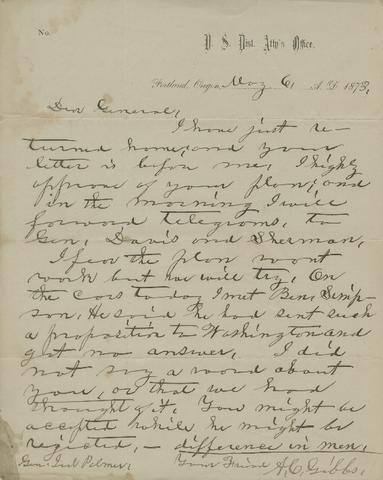 No.
U. S. Dist. Att'y's Office.
Portland, Oregon, May 6, A. D. 1873.
Dear General,
I have just re-
turned home, and your
letter is before me, I highly
approve of your plan, and
in the morning I will
forward telegrams, to
Gen. Davis and Sherman,
I fear the plan wont
work but we will try, On
the cars today I met Ben, Simp-
son, He said he had sent such
a proposition to Washington and
got no answer, I did
not say a word about
you, or that we had
thought of it, You might be
accepted while he might be
rejected, — difference in men,
Gen. Joel Palmer, Your Friend A. C. Gibbs,